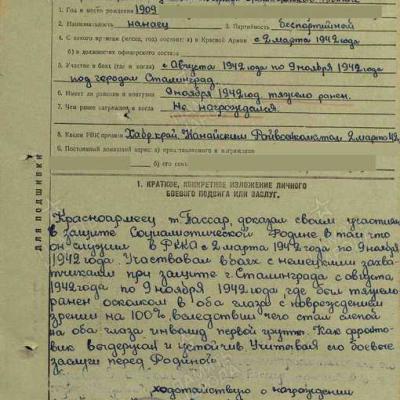 1. Год и место рождения 1909
2. Национальность нанаец 3. Партийность беспартийный
4. С какого времени (месяц, год) состоит: а) в Красной Армии с 2 марта 1942 года
б) в должностях офицерского состава
5. Участие в боях (где и когда) с Августа 1942 года по 9 ноября 1942 года
под городом Сталинград.
6. Имеет ли ранения и контузии 9 ноября 1942 год. тяжело ранен.
7. Чем ранее награжден и когда Не награждался.
8. Каким РВК призван Хабр.край. Нанайским Райвоенкоматом 2 марта 42
6. Постоянный домашний адрес: а)
б) его семьи
для подшивки
1. КРАТКОЕ, КОНКРЕТНОЕ ИЗЛОЖЕНИЕ ЛИЧНОГО
БОЕВОГО ПОДВИГА ИЛИ ЗАСЛУГ.
Красноармеец т. Пассар, доказал своим участием
в защите Социалистической Родине в том что
он служил в РККА с 2 марта 1942 года по 9 ноября
1942 года. Участвовал в боях с немецкими захва-
тчиками при защите г. Сталинграда с августа
1942 года по 9 ноября 1942 года где был тяжело
ранен осколком в оба глаза с повреждением
зрении на 100%, вследствии чего стал слепой
на оба глаза инвалид первой группы. Как фронто-
вик выдержан и устойчив. Учитывая его боевые
заслуги перед Родиной
ходотайствую о награждении